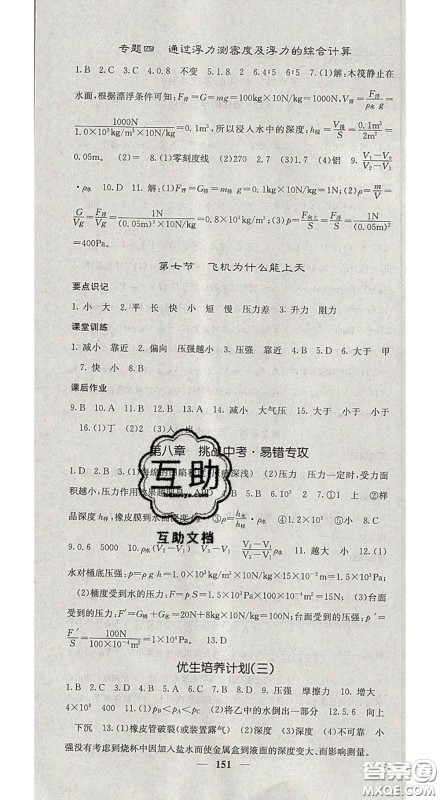 专题四 通过浮力测密度及浮力的综合计算
1.B 2.C 3.C 4.0.8 不变 5.1.8 2 6.4:5 6:5 7.(1)解:木筏静止在
水面,根据漂浮条件可知:F浮=G=mg=100kg×10N/kg=1000N,V排=F浮/ρ水g=
1000N/1.0×10³kg/m³×10N/kg=0.1m³,所以浸入水中的深度:h浸=V排/S=0.1m³/2m²=
0.05m。(2)= 8.(1)零刻度线 (2)270 2.7 (3)1.3 (4)铝 9.(V₁-V₀)/(V₂-V₀)
·ρ水 10.D 11.解:(1)F浮=G=mg=0.1kg×10N/kg=1N;(2)ρ=m/V=
G/Vg=F浮/Vg=1N/(0.05m)³×10N/kg (3)p=F向上/S=F浮/S=1N/(0.05m)²
=400Pa。
第七节 飞机为什么能上天
要点识记
1.小 大 2.平 长 快 小 短 慢 压力差 3.升力 阻力
课堂训练
1.减小 靠近 2.偏向 压强越小 3.靠近 4.B 5.D 6.大于 7.大于 甲
8.B
课后作业
9.B 10.A 11.B 12.D 13.减小 大气压 14.大于 大于 15.大于 小
于 16.(1)下 (2)3 (3)人 出
第八章 挑战中考·易错专攻
1.D 2.C 3.(1)海绵的凹陷程度 深浅) (2)压力 压力一定时,受力面
积越小,压力作用效果越明显 ABD 4.B 5.D 6.B 7.D 8.(1)② ①样
品深度h样 橡皮膜到水面深度 ρ=h水/h样·ρ水 ④1.2×10³ (2)①
9.0.6 5000 ρ水(V₂-V₁) (V₂-V₀)/(V₂-V₁)ρ水 11.越大 小 12.(1)
水对桶底压强:p=ρgh=1.0×10³kg/m³×10N/kg×15×10⁻²m=1.5×10³Pa;
(2)桶底受到水的压力:F=pS=1.5×10³Pa×100×10⁻⁴m²=15N;(3)台
面受到的压力:F′=G桶+G水=20N+8kg×10N/kg=100N;台面受到的压强:p′=
F′/S=100N/100×10⁻⁴m²=1×10⁴Pa。 13.D
优生培养计划(三)
1.B 2.C 3.D 4.A 5.B 6.A 7.A 8.D 9.压强 摩擦力 10.增大
4×10³ 400 11.(1)2 p A<p B (2)将乙中的水倒出一部分 12.5.6 向上
下沉 13.(1)橡皮管破裂(或装置漏气) (2)深度 (3)深度 (4)不可靠 小
强没有考虑到烧杯中因加入盐水而使金属盒到液面的深度变大,而影响测量。
151
互助
互助文档
答案圈
MXQE.COM